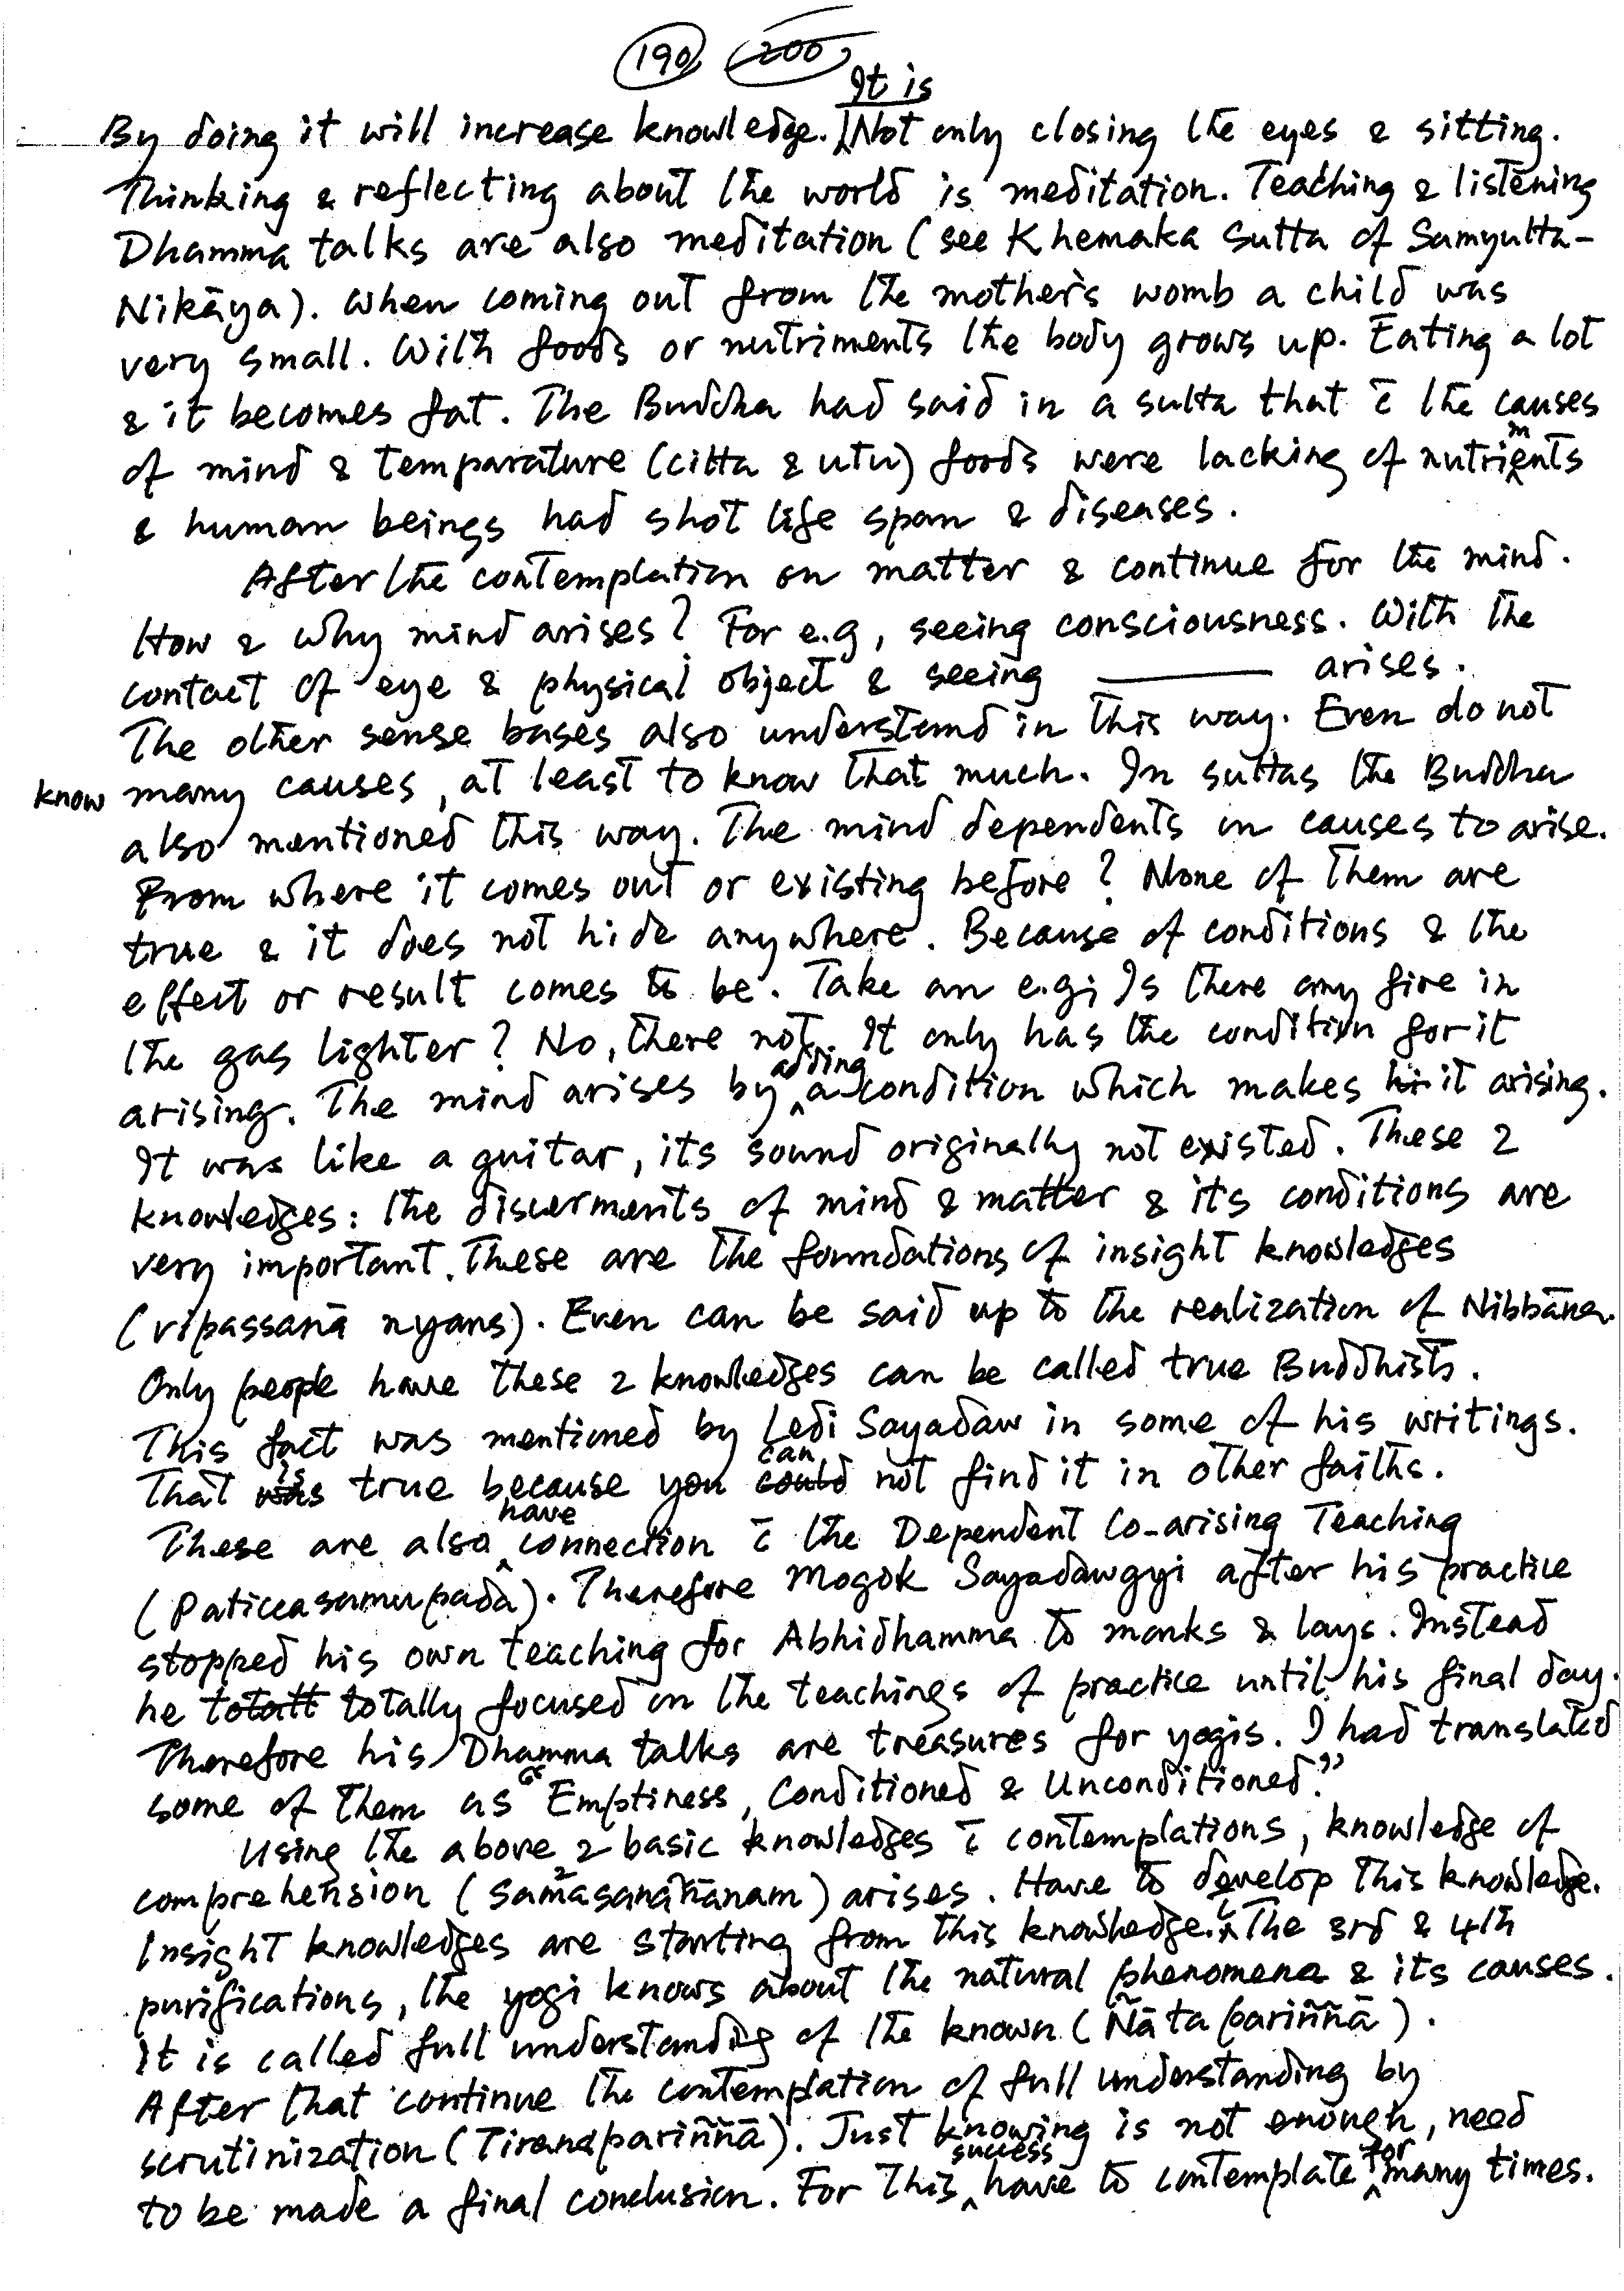 190 200
By doing it will increase knowledge. It is Not only closing the eyes & sitting.
Thinking & reflecting about the world is meditation. Teaching & listening
Dhamma talks are also meditation (see Khemaka Sutta of Samyutta-
Nikāya). When coming out from the mother's womb a child was
very small. With foods or nutriments the body grows up. Eating a lot
& it becomes fat. The Buddha had said in a sutta that c̄ the causes
of mind & temparature (citta & utu) foods were lacking of nutriments
& human beings had shot life span & diseases.
After the contemplation on matter & continue for the mind.
How & why mind arises? For e.g, seeing consciousness. With the
contact of eye & physical object & seeing ——— arises.
The other sense bases also understand in this way. Even do not
know many causes, at least to know that much. In suttas the Buddha
also mentioned this way. The mind dependents on causes to arise.
From where it comes out or existing before? None of them are
true & it does not hide anywhere. Because of conditions & the
effect or result comes to be. Take an e.g; Is there any fire in
the gas lighter? No, there not. It only has the condition for it
arising. The mind arises by adding a condition which makes it arising.
It was like a guitar, its sound originally not existed. These 2
knowledges: the discerments of mind & matter & its conditions are
very important. These are the foundations of insight knowledges
(vipassanā nyans). Even can be said up to the realization of Nibbāna.
Only people have these 2 knowledges can be called true Buddhists.
This fact was mentioned by Ledi Sayadaw in some of his writings.
That is true because you can not find it in other faiths.
These are also have connection c̄ the Dependent Co-arising Teaching
(Paticcasamupadā). Therefore Mogok Sayadawgyi after his practice
stopped his own teaching for Abhidhamma to monks & lays. Instead
he totally focused on the teachings of practice until his final day.
Therefore his Dhamma talks are treasures for yogis. I had translated
some of them as "Emptiness, Conditioned & Unconditioned."
Using the above 2 basic knowledges c̄ contemplations, knowledge of
comprehension (samāsanañānam) arises. Have to develop this knowledge.
Insight knowledges are starting from this knowledge. The 3rd & 4th
purifications, the yogi knows about the natural phenomena & its causes.
It is called full understanding of the known (Ñāta pariññā).
After that continue the contemplation of full understanding by
scrutinization (Tiranapariññā). Just knowing is not enough, need
to be made a final conclusion. For this success have to contemplate for many times.